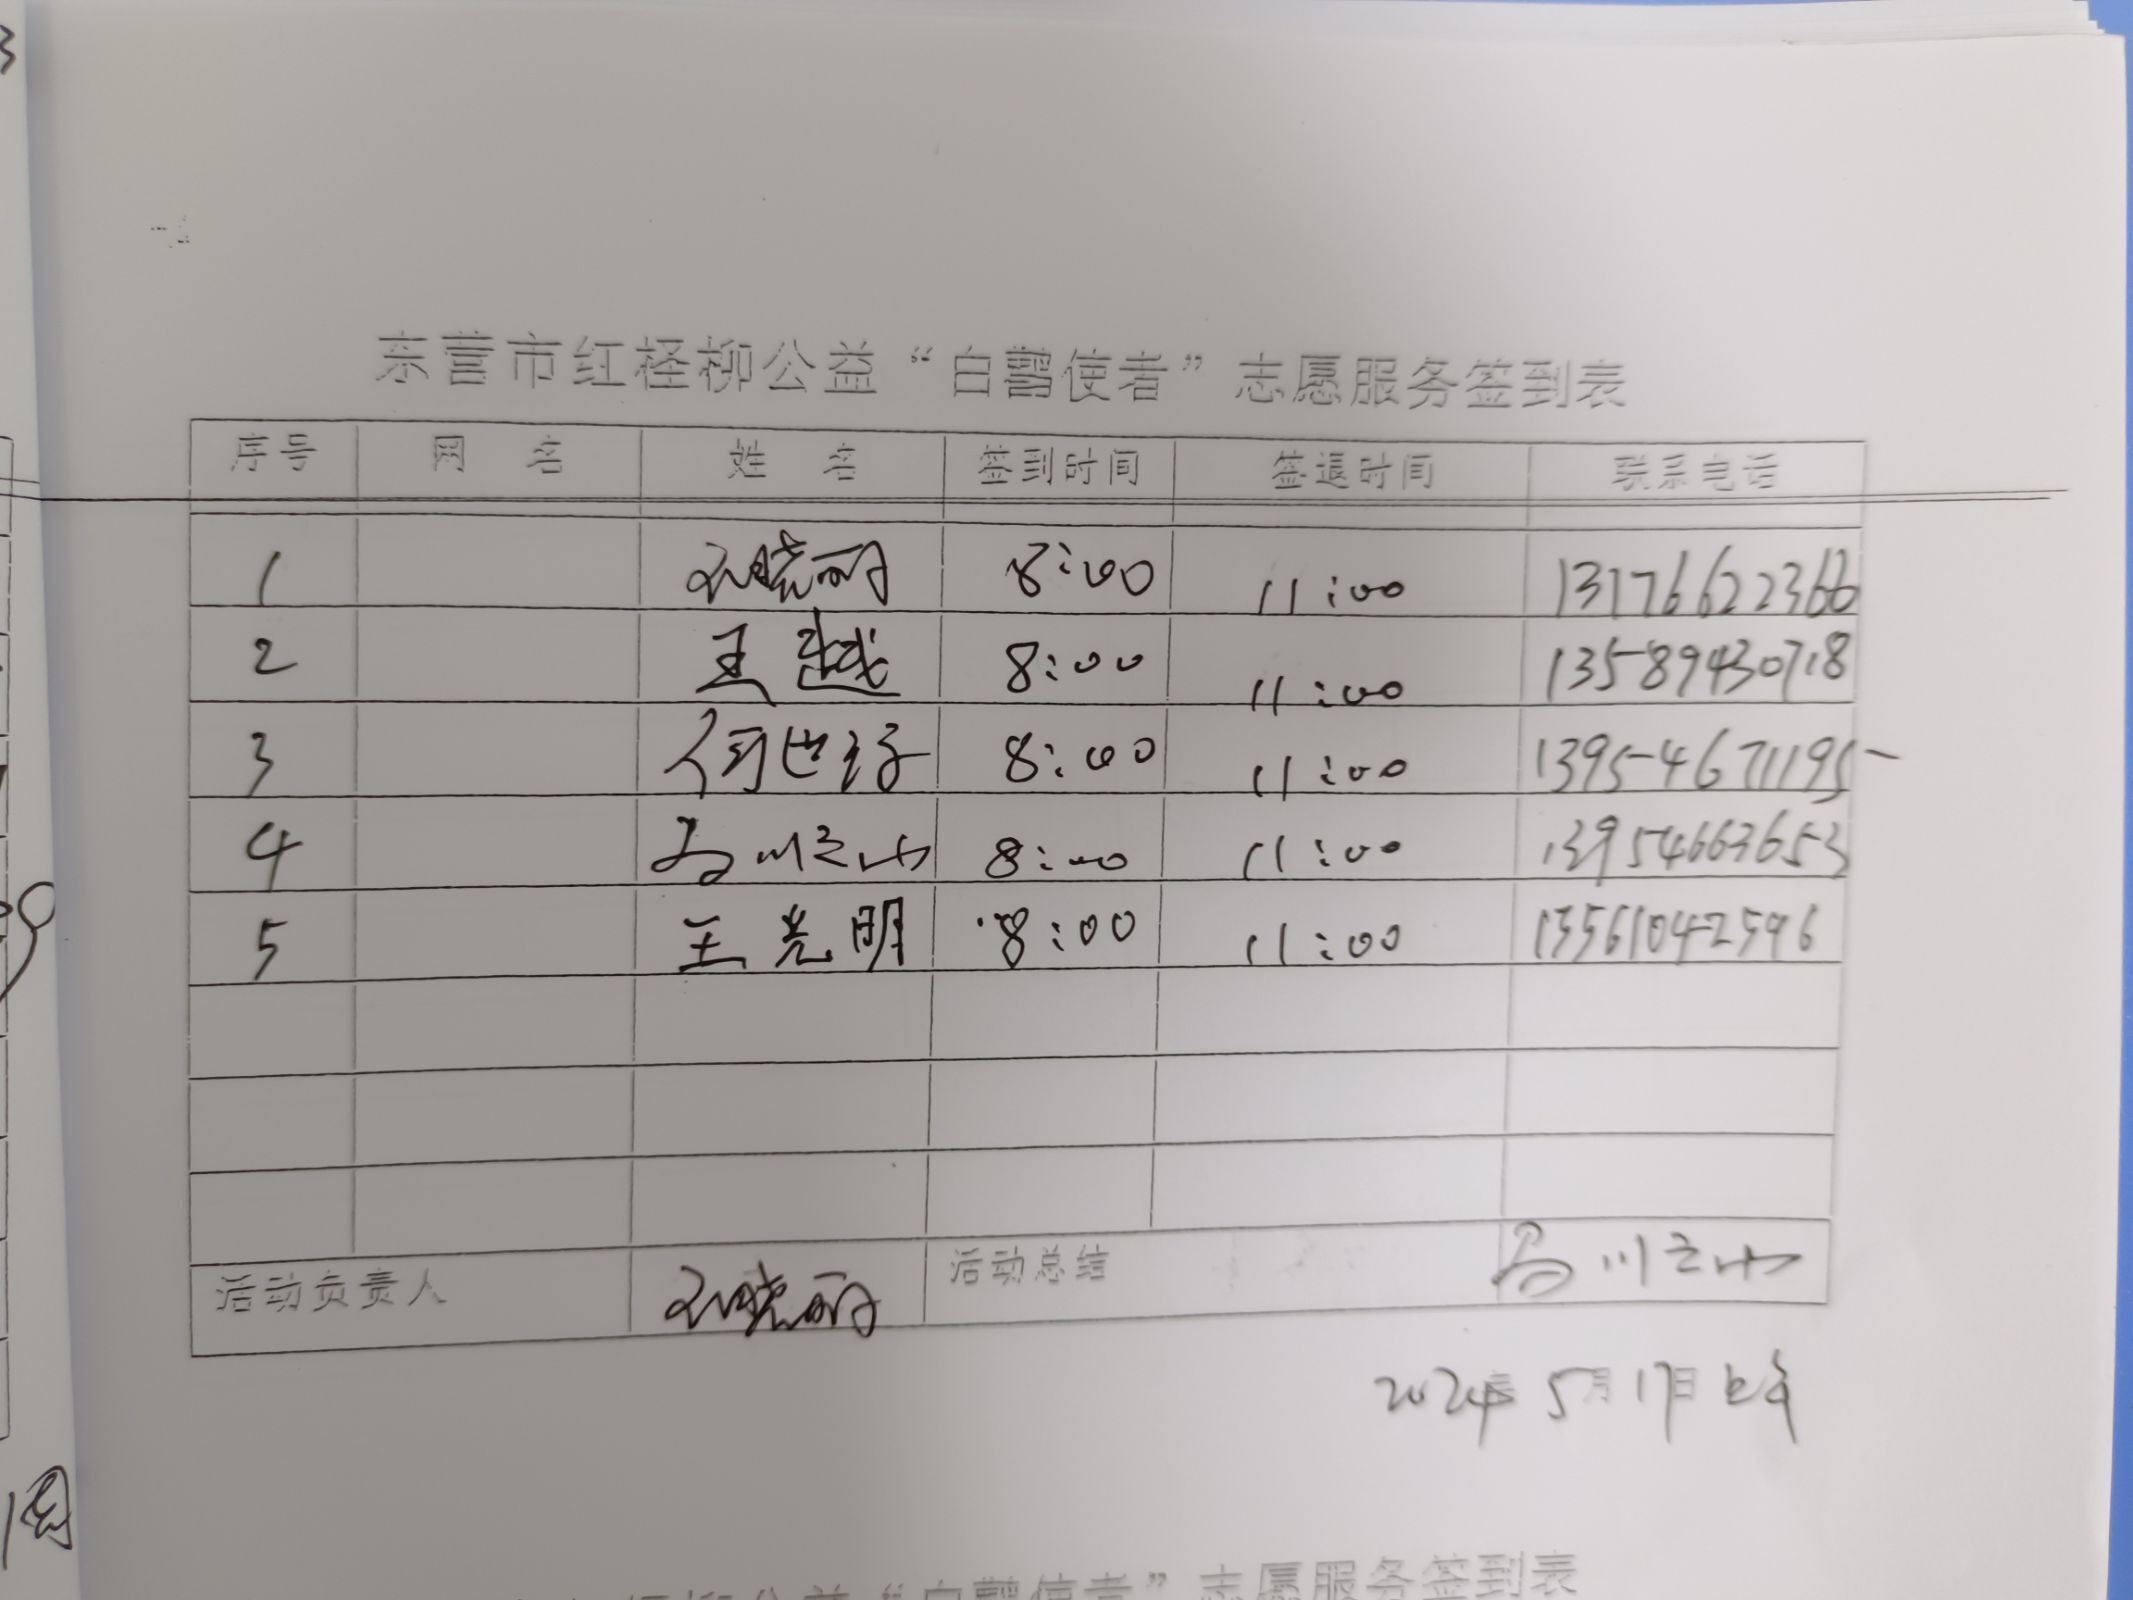 东营市红柽柳公益“白鹭使者”志愿服务签到表
序号 网 名 姓 名 签到时间 签退时间 联系电话
1 刘晓丽 8:00 11:00 13176622366
2 王越 8:00 11:00 13589430718
3 何世好 8:00 11:00 13954671195
4 8:00 11:00 13954663653
5 王光明 8:00 11:00 13561042596
活动负责人 刘晓丽 活动总结
2024年 5月 17日 上午
“白鹭使者”志愿服务签到表